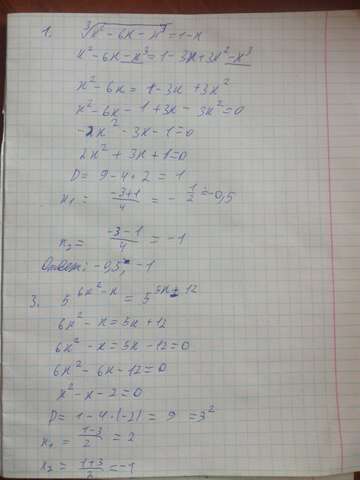 1. ∛(x² - 6x - x³) = 1 - x
x² - 6x - x³ = 1 - 3x + 3x² - x³
x² - 6x = 1 - 3x + 3x²
x² - 6x - 1 + 3x - 3x² = 0
-2x² - 3x - 1 = 0
2x² + 3x + 1 = 0
D = 9 - 4·2 = 1
x₁ = (-3+1)/4 = -1/2 = -0,5
x₂ = (-3-1)/4 = -1
Ответ: -0,5; -1
3. 5^(6x² - x) = 5^(5x + 12)
6x² - x = 5x + 12
6x² - x = 5x - 12 = 0
6x² - 6x - 12 = 0
x² - x - 2 = 0
D = 1 - 4·(-2) = 9 = 3²
x₁ = (1-3)/2 = 2
x₂ = (1+3)/2 = -1